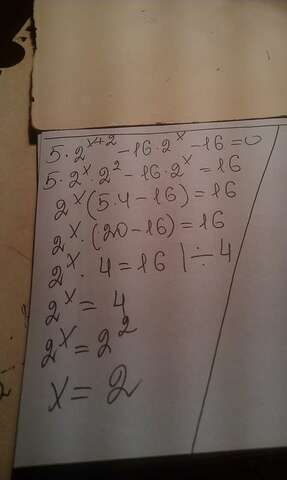 5·2^{x+2} -16·2^x -16=0
5·2^x·2^2 -16·2^x =16
2^x(5·4-16)=16
2^x·(20-16)=16
2^x· 4=16 |÷4
2^x = 4
2^x = 2^2
x = 2